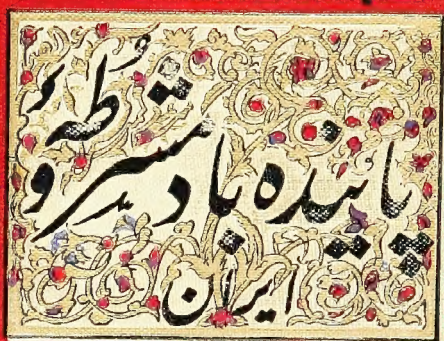 پاینده باد مشروطه
ایران